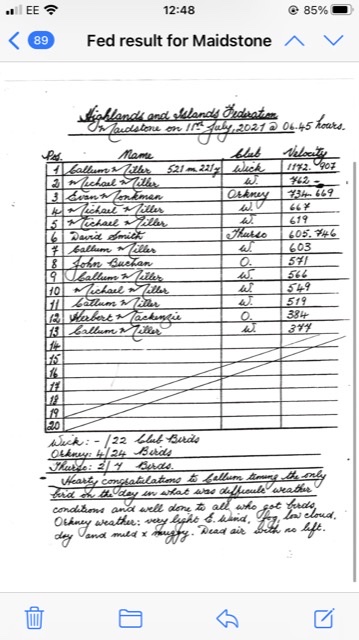 EE 12:48 85%
89 Fed result for Maidstone
Highlands and Islands Federation
Maidstone on 11th July, 2021 @ 06.45 hours.
Pos. Name Club Velocity
1 Callum Miller 521 m 221 y Wick 1172. 907
2 Michael Miller W. 762 -
3 Evan Monkman Orkney 734. 669
4 Michael Miller W. 667
5 Michael Miller W. 619
6 David Smith Thurso 605. 746
7 Callum Miller W. 603
8 John Buchan O. 571
9 Callum Miller W. 566
10 Michael Miller W. 549
11 Callum Miller W. 519
12 Herbert Mackenzie O. 384
13 Callum Miller W. 377
14
15
16
17
18
19
20
Wick: - / 22 Club Birds
Orkney: 4/24 Birds
Thurso: 2/7 Birds.
Hearty congratulations to Callum timing the only
bird on the day in what was difficult weather
conditions and well done to all who got birds.
Orkney weather: very light E. wind, fog, low cloud,
dry and mild & muggy. Dead air with no lift.